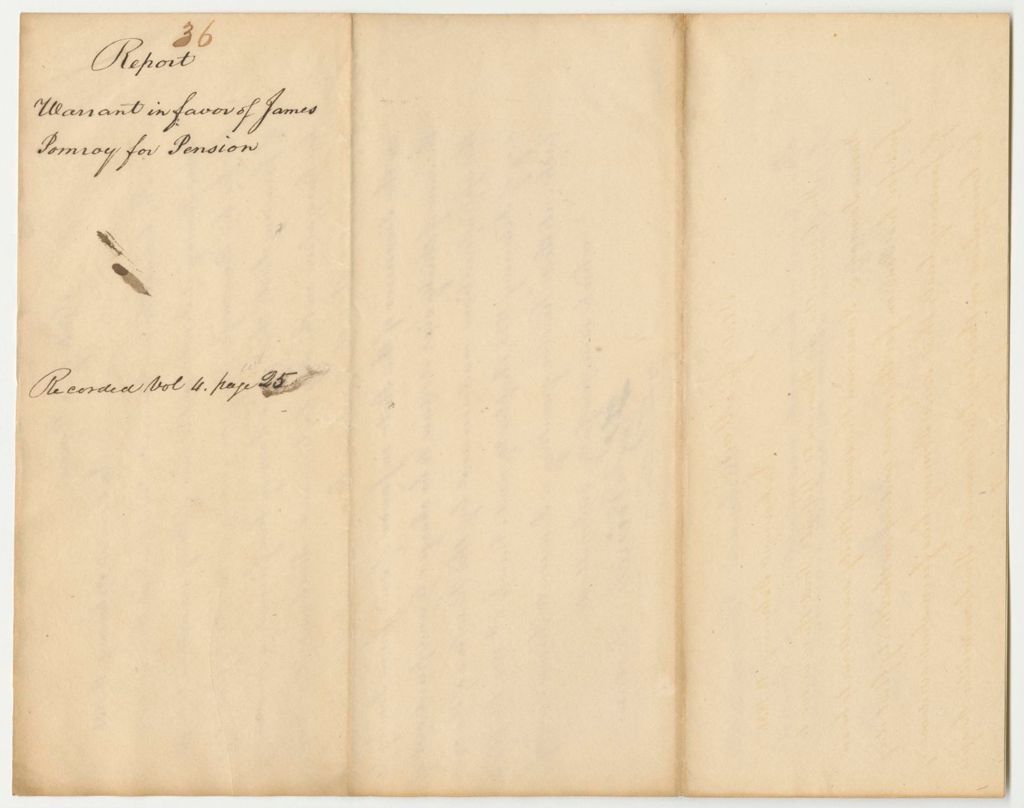 36
Report
Warrant in favor of James
Pomroy for Pension
Recorded Vol 4. page 25